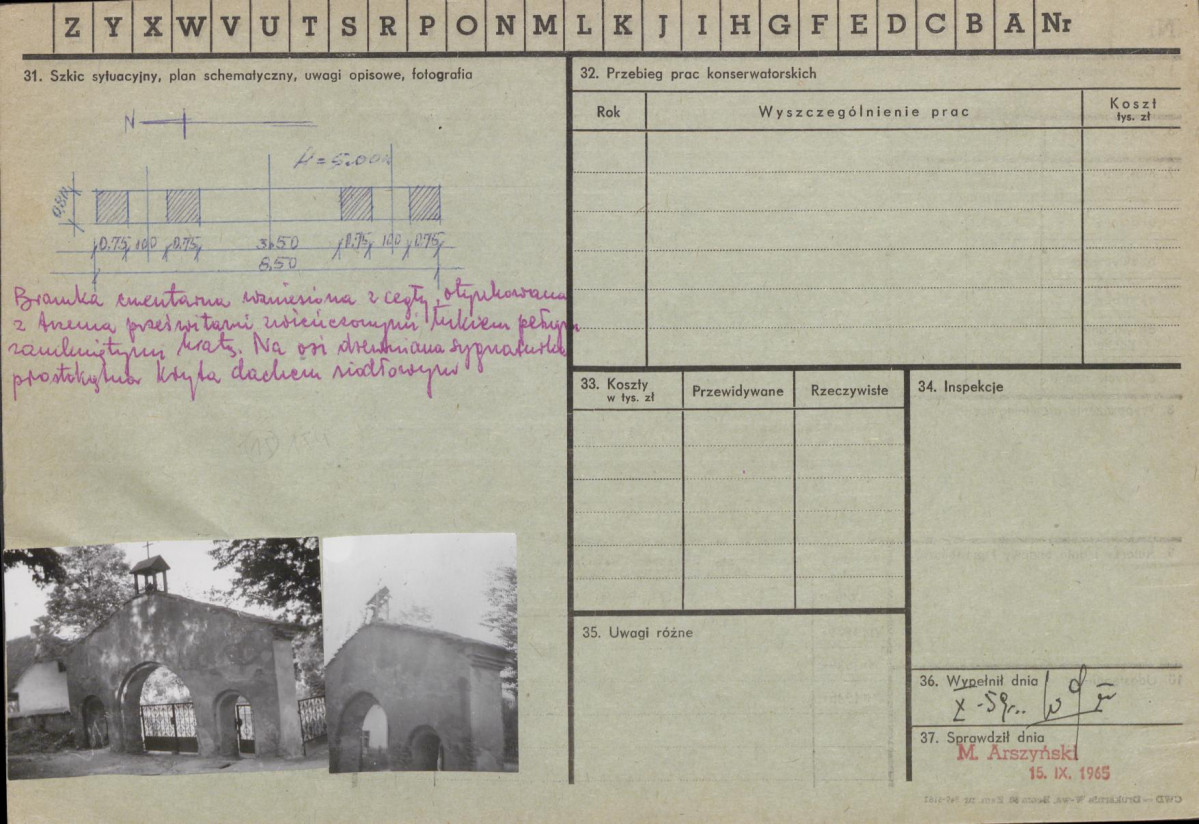 Z Y X W V U T S R P O N M L K J I H G F E D C B A Nr
31. Szkic sytuacyjny, plan schematyczny, uwagi opisowe, fotografia
N
H = 5.00
0,75 100 0.75 3.50 0.75 100 0.75
Bramka cmentarna wzniesiona z cegły, otynkowana
z trzema prześwitami zwieńczonymi łukiem pełnym
zamkniętymi kratą. Na osi drewniana sygnaturka
prostokątna kryta dachem siodłowym
32. Przebieg prac konserwatorskich
Rok Wyszczególnienie prac Koszt
tys. zł
33. Koszty
w tys. zł
Przewidywane Rzeczywiste
34. Inspekcje
35. Uwagi różne
36. Wypełnił dnia
X-59r.
37. Sprawdził dnia
M. Arszyński
15. IX. 1965